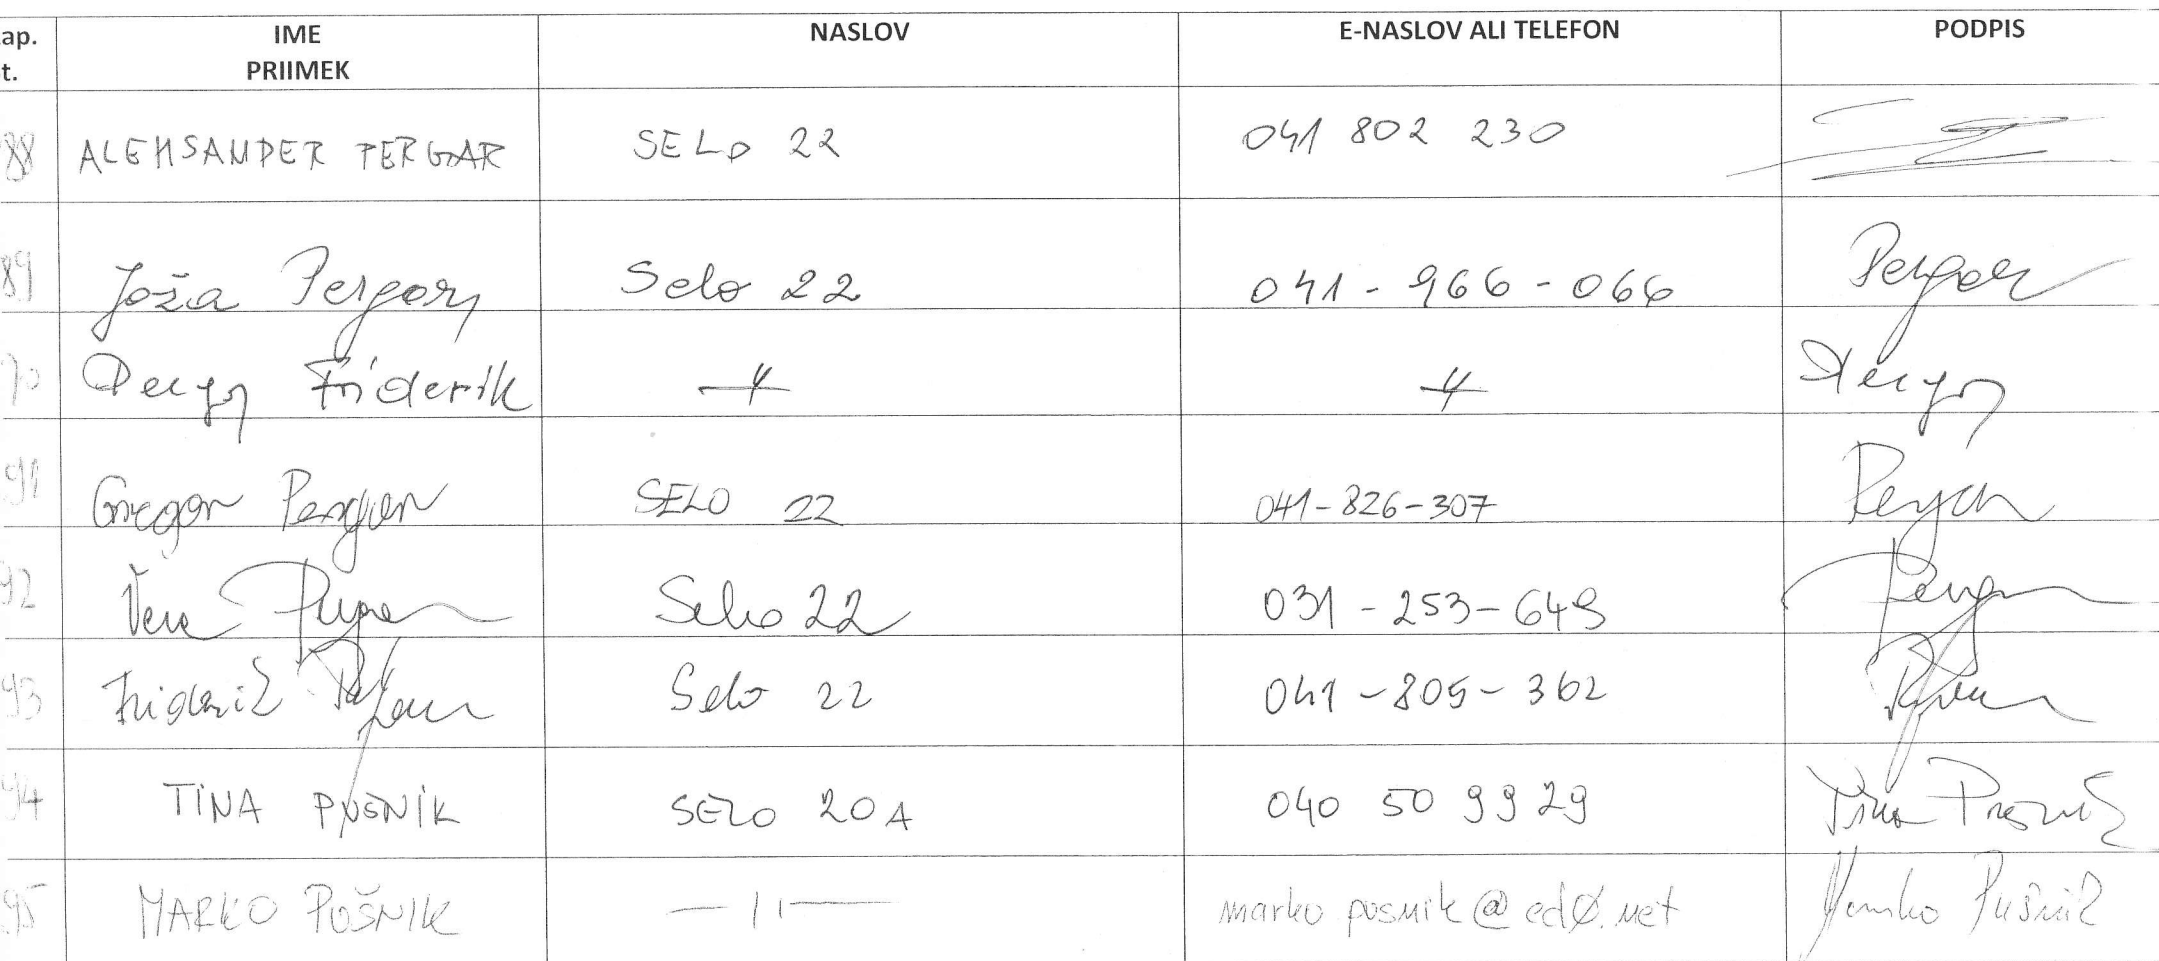 ap. IME NASLOV E-NASLOV ALI TELEFON PODPIS
t. PRIIMEK
88 ALEKSANDER PERGAR SELO 22 041 802 230
89 Joža Pergar Selo 22 041-966-066 Pergar
90 Pergar Friderik -//- -//- Pergar
91 Gregor Pergar SELO 22 041-826-307 Pergar
92 Vera Pergar Selo 22 031-253-649 Pergar
93 Friderik Selo 22 041-805-362
94 TINA PUŠNIK SELO 20A 040 50 99 29 Tina Pušnik
95 MARKO PUŠNIK -11- marko pusnik@edø.net Marko Pušnik